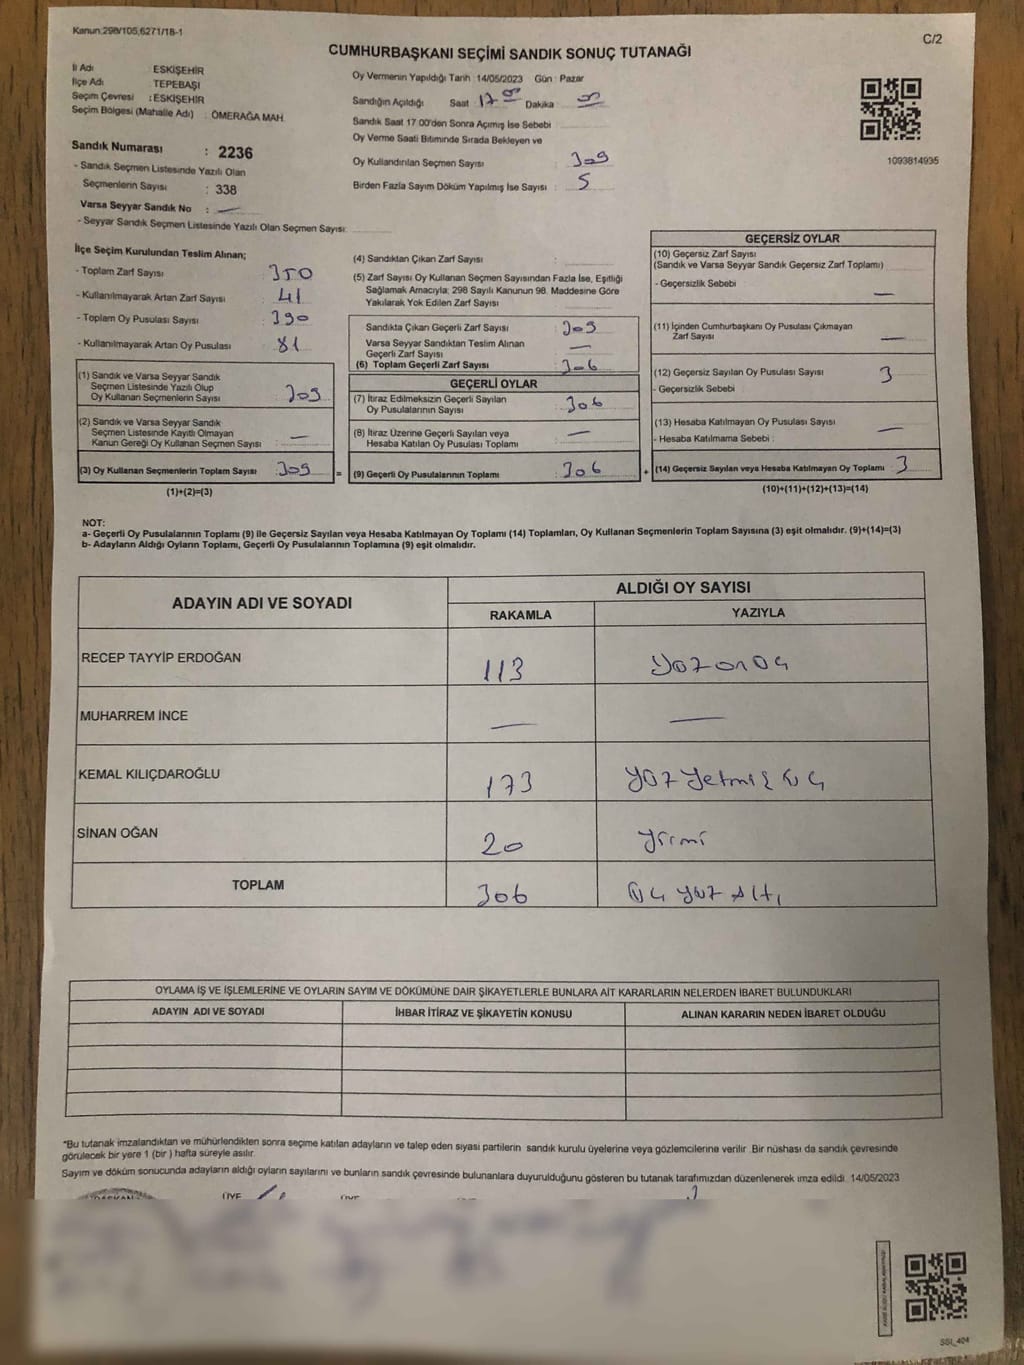 Kanun:298/105,6271/18-1
C/2
CUMHURBAŞKANI SEÇİMİ SANDIK SONUÇ TUTANAĞI
İl Adı : ESKİŞEHİR
İlçe Adı : TEPEBAŞI
Seçim Çevresi : ESKİŞEHİR
Seçim Bölgesi (Mahalle Adı) : ÖMERAĞA MAH.
Sandık Numarası : 2236
- Sandık Seçmen Listesinde Yazılı Olan
Seçmenlerin Sayısı : 338
Varsa Seyyar Sandık No : —
- Seyyar Sandık Seçmen Listesinde Yazılı Olan Seçmen Sayısı:
Oy Vermenin Yapıldığı Tarih : 14/05/2023 Gün : Pazar
Sandığın Açıldığı Saat 17 00 Dakika
Sandık Saat 17:00'den Sonra Açımış İse Sebebi
Oy Verme Saati Bitiminde Sırada Bekleyen ve
Oy Kullandırılan Seçmen Sayısı : 309
Birden Fazla Sayım Döküm Yapılmış İse Sayısı : 5
1093814935
İlçe Seçim Kurulundan Teslim Alınan;
- Toplam Zarf Sayısı : 350
- Kullanılmayarak Artan Zarf Sayısı : 41
- Toplam Oy Pusulası Sayısı : 390
- Kullanılmayarak Artan Oy Pusulası : 81
(1) Sandık ve Varsa Seyyar Sandık
Seçmen Listesinde Yazılı Olup
Oy Kullanan Seçmenlerin Sayısı : 309
(2) Sandık ve Varsa Seyyar Sandık
Seçmen Listesinde Kayıtlı Olmayan
Kanun Gereği Oy Kullanan Seçmen Sayısı : —
(3) Oy Kullanan Seçmenlerin Toplam Sayısı : 309
(1)+(2)=(3)
=
(4) Sandıktan Çıkan Zarf Sayısı :
(5) Zarf Sayısı Oy Kullanan Seçmen Sayısından Fazla İse, Eşitliği
Sağlamak Amacıyla; 298 Sayılı Kanunun 98. Maddesine Göre
Yakılarak Yok Edilen Zarf Sayısı :
Sandıkta Çıkan Geçerli Zarf Sayısı : 309
Varsa Seyyar Sandıktan Teslim Alınan
Geçerli Zarf Sayısı : —
(6) Toplam Geçerli Zarf Sayısı : 306
GEÇERLİ OYLAR
(7) İtiraz Edilmeksizin Geçerli Sayılan
Oy Pusulalarının Sayısı : 306
(8) İtiraz Üzerine Geçerli Sayılan veya
Hesaba Katılan Oy Pusulası Toplamı : —
(9) Geçerli Oy Pusulalarının Toplamı : 306
+
GEÇERSİZ OYLAR
(10) Geçersiz Zarf Sayısı
(Sandık ve Varsa Seyyar Sandık Geçersiz Zarf Toplamı)
- Geçersizlik Sebebi —
(11) İçinden Cumhurbaşkanı Oy Pusulası Çıkmayan
Zarf Sayısı —
(12) Geçersiz Sayılan Oy Pusulası Sayısı 3
- Geçersizlik Sebebi :
(13) Hesaba Katılmayan Oy Pusulası Sayısı —
- Hesaba Katılmama Sebebi :
(14) Geçersiz Sayılan veya Hesaba Katılmayan Oy Toplamı 3
(10)+(11)+(12)+(13)=(14)
NOT:
a- Geçerli Oy Pusulalarının Toplamı (9) ile Geçersiz Sayılan veya Hesaba Katılmayan Oy Toplamı (14) Toplamları, Oy Kullanan Seçmenlerin Toplam Sayısına (3) eşit olmalıdır. (9)+(14)=(3)
b- Adayların Aldığı Oyların Toplamı, Geçerli Oy Pusulalarının Toplamına (9) eşit olmalıdır.
ADAYIN ADI VE SOYADI ALDIĞI OY SAYISI
RAKAMLA YAZIYLA
RECEP TAYYİP ERDOĞAN 113 yüz onüç
MUHARREM İNCE — —
KEMAL KILIÇDAROĞLU 173 yüz yetmiş üç
SİNAN OĞAN 20 yirmi
TOPLAM 306 üç yüz altı
OYLAMA İŞ VE İŞLEMLERİNE VE OYLARIN SAYIM VE DÖKÜMÜNE DAİR ŞİKAYETLERLE BUNLARA AİT KARARLARIN NELERDEN İBARET BULUNDUKLARI
ADAYIN ADI VE SOYADI İHBAR İTİRAZ VE ŞİKAYETİN KONUSU ALINAN KARARIN NEDEN İBARET OLDUĞU
*Bu tutanak imzalandıktan ve mühürlendikten sonra seçime katılan adayların ve talep eden siyasi partilerin sandık kurulu üyelerine veya gözlemcilerine verilir. Bir nüshası da sandık çevresinde
görülecek bir yere 1 (bir) hafta süreyle asılır.
Sayım ve döküm sonucunda adayların aldığı oyların sayılarını ve bunların sandık çevresinde bulunanlara duyurulduğunu gösteren bu tutanak tarafımızdan düzenlenerek imza edildi. 14/05/2023
BAŞKAN ÜYE ÜYE
SSI_404